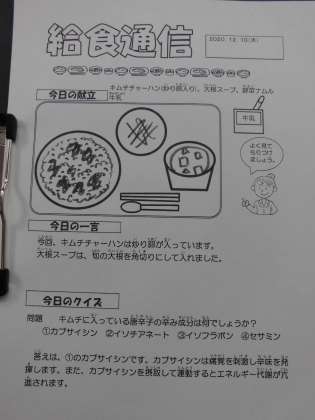 給食通信
2020. 12. 10(木)
今日の献立
キムチチャーハン(炒り卵入り)、大根スープ、野菜ナムル
牛乳
牛乳
よく見て
もりつけ
ましょう。
今日の一言
今回、キムチチャーハンは炒り卵が入っています。
大根スープは、旬の大根を角切りにして入れました。
今日のクイズ
問題 キムチに入っている唐辛子の辛み成分は何でしょうか?
①カプサイシン ②イソチアネート ③イソフラボン ④セサミン
答えは、①のカプサイシンです。カプサイシンは痛覚を刺激し辛味を発
揮します。また、カプサイシンを摂取して運動するとエネルギー代謝が亢
進されます。